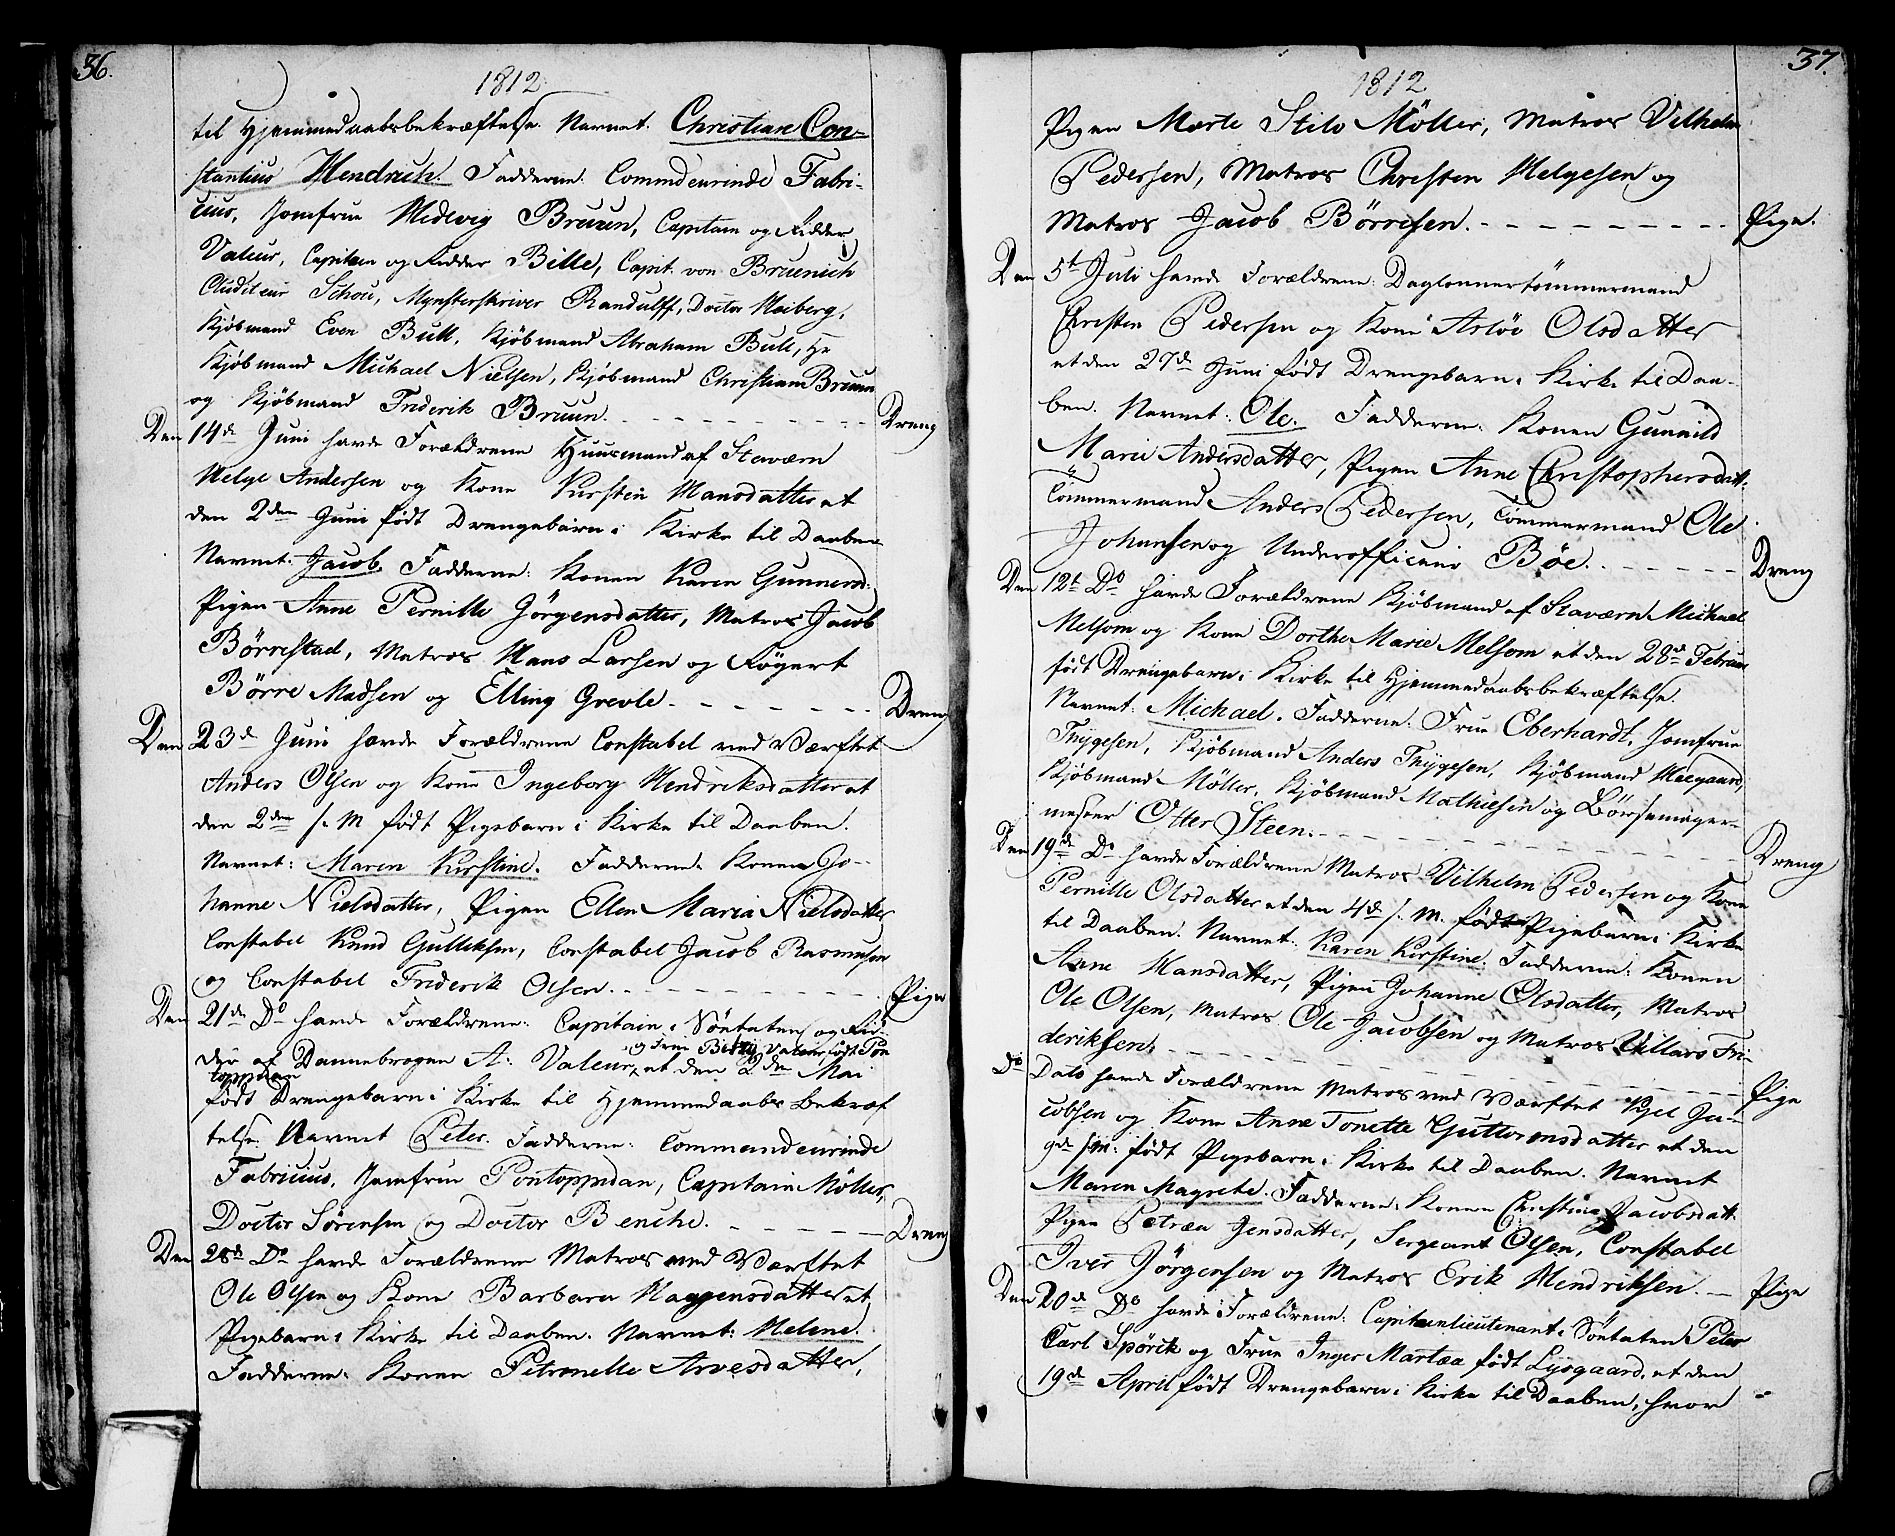 36.
1812
til Hjemmedaabsbekræftelse. Navnet. Christiane Con-
stantius Hendrich. Fadderne. Commdeurinde Fabri-
cius, Jomfrue Hedevig Bruun, Capitain og Ridder
Valeur, Capitain og Ridder Bille, Capit. von Bruenich
Auditeur Schou, Mynsterskriver Randulff, Doctor Heiberg,
Kjöbmand Even Bull, Kjöbmand Abraham Bull, Hr
Kjöbmand Michael Nielsen, Kjöbmand Christian Bruun
og Kjöbmand Frderik Bruun. Dreng
Den 14de Juni havde Forældrene Huusmand af Staværn
Helge Andersen og Kone Kirsten Hansdatter et
den 2den Juni födt Drengebarn i Kirke til Daaben
Navnet. Jacob. Fadderne: Konen Karen Gunnersd:
Pigen Anne Pernille Jörgensdatter, Matros Jacob
Börrestad, Matros Hans Larsen og
Börre Madsen og Elling Grevle. Dreng
Den 23de Juni havde Forældrene Constabel ved Værftet
Anders Olsen og Kone Ingeborg Hendriksdatter et
den 2den s. M födt Pigebarn i Kirke til Daaben.
Navnet: Maren Kirstine. Fadderne. Konen Jo-
hanne Nielsdatter, Pigen Ellen Maria Nielsdatter
Constabel Knud Gulliksen, Constabel Jacob Rasmusen
og Constabel Friderik Olsen. Pige
Den 21de Do havde Forældrene: Capitain i Söetaten og Rid-
der af Dannebrogen A: Valeur, og Frue Birthe Valeur födt Pon
toppidan et den 2den Mai
födt Drengebarn i Kirke til Hjemmedaabs Bekræf
telse. Navnet Peter. Fadderne: Commandeurinde
Fabricius, Jomfrue Pontoppidan, Capitain Möller,
Doctor Sörensen og Doctor Benche. Dreng
Den 28de Do havde Forældrene Matros ved Værftet
Ole Olsen og Kone Barbara Haagensdatter et
Pigebarn i Kirke til Daaben. Navnet: Helene.
Fadderne: Konen Petronelle Arvesdatter,
37.
1812
Pigen Marte Möller, Matros Vilhelm
Pedersen, Matros Christen Helgesen og
Matros Jacob Börresen. Pige.
Den 5t Juli havde Forældrene: Daglonnertömmermand
Christen Pedersen og Kone Aslöv Olsdatter
et den 27de Juni födt Drengebarn i Kirke til Daa-
ben. Navnet: Ole. Fadderne: Konen Gunnild
Marie Andersdatter, Pigen Anne Christophersdat:
Tömmermand Anders Pedersen, Tömmermand Ole
Johansen og Underofficeer Böe. Dreng
Den 12t Do havde Forældrene Kjöbmand af Staværn Michael
Melsom og Kone Dorthe Marie Melsom et den 28de Februar
födt Drengebarn i Kirke til Hjemmedaabsbekræftelse.
Navnet: Michael. Fadderne: Frue Eberhardt, Jomfrue
Thygesen, Kjöbmand Anders Thygesen, Kjöbmand Heegaard,
Kjöbmand Möller, Kjöbmand Mathiesen og Börsemager-
mester Otter Steen. Dreng
Den 19de Do havde Forældrene Matros Vilhelm Pedersen og Kone
Pernille Olsdatter et den 4de s. M. födt Pigebarn i Kirke
til Daaben. Navnet: Karen Kirstine. Fadderne: Konen
Anne Hansdatter, Pigen Johanne Olsdatter, Matros
Ole Olsen, Matros Ole Jacobsen og Matros Villars Fri-
deriksen. Pige
Do Dato havde Forældrene Matros ved Værftet Kjel Ja-
cobsen og Kone Anne Tonette Guttormsdatter et den
9de s.M. födt Pigebarn i Kirke til Daaben. Navnet
Maren Magrete. Fadderne: Konen Christine Jacobsdatt.
Pigen Petræa Jensdatter, Sergeant Olsen, Constabel
Iver Jörgensen og Matros Erik Hendriksen. Pige
Den 20de Do havde Forældrene: Capitainlieutenant i Söetaten Peter
Carl Spörck og Frue Inger Martæa födt Lysgaard, et den
19de April födt Drengebarn i Kirke til Daaben, hvor